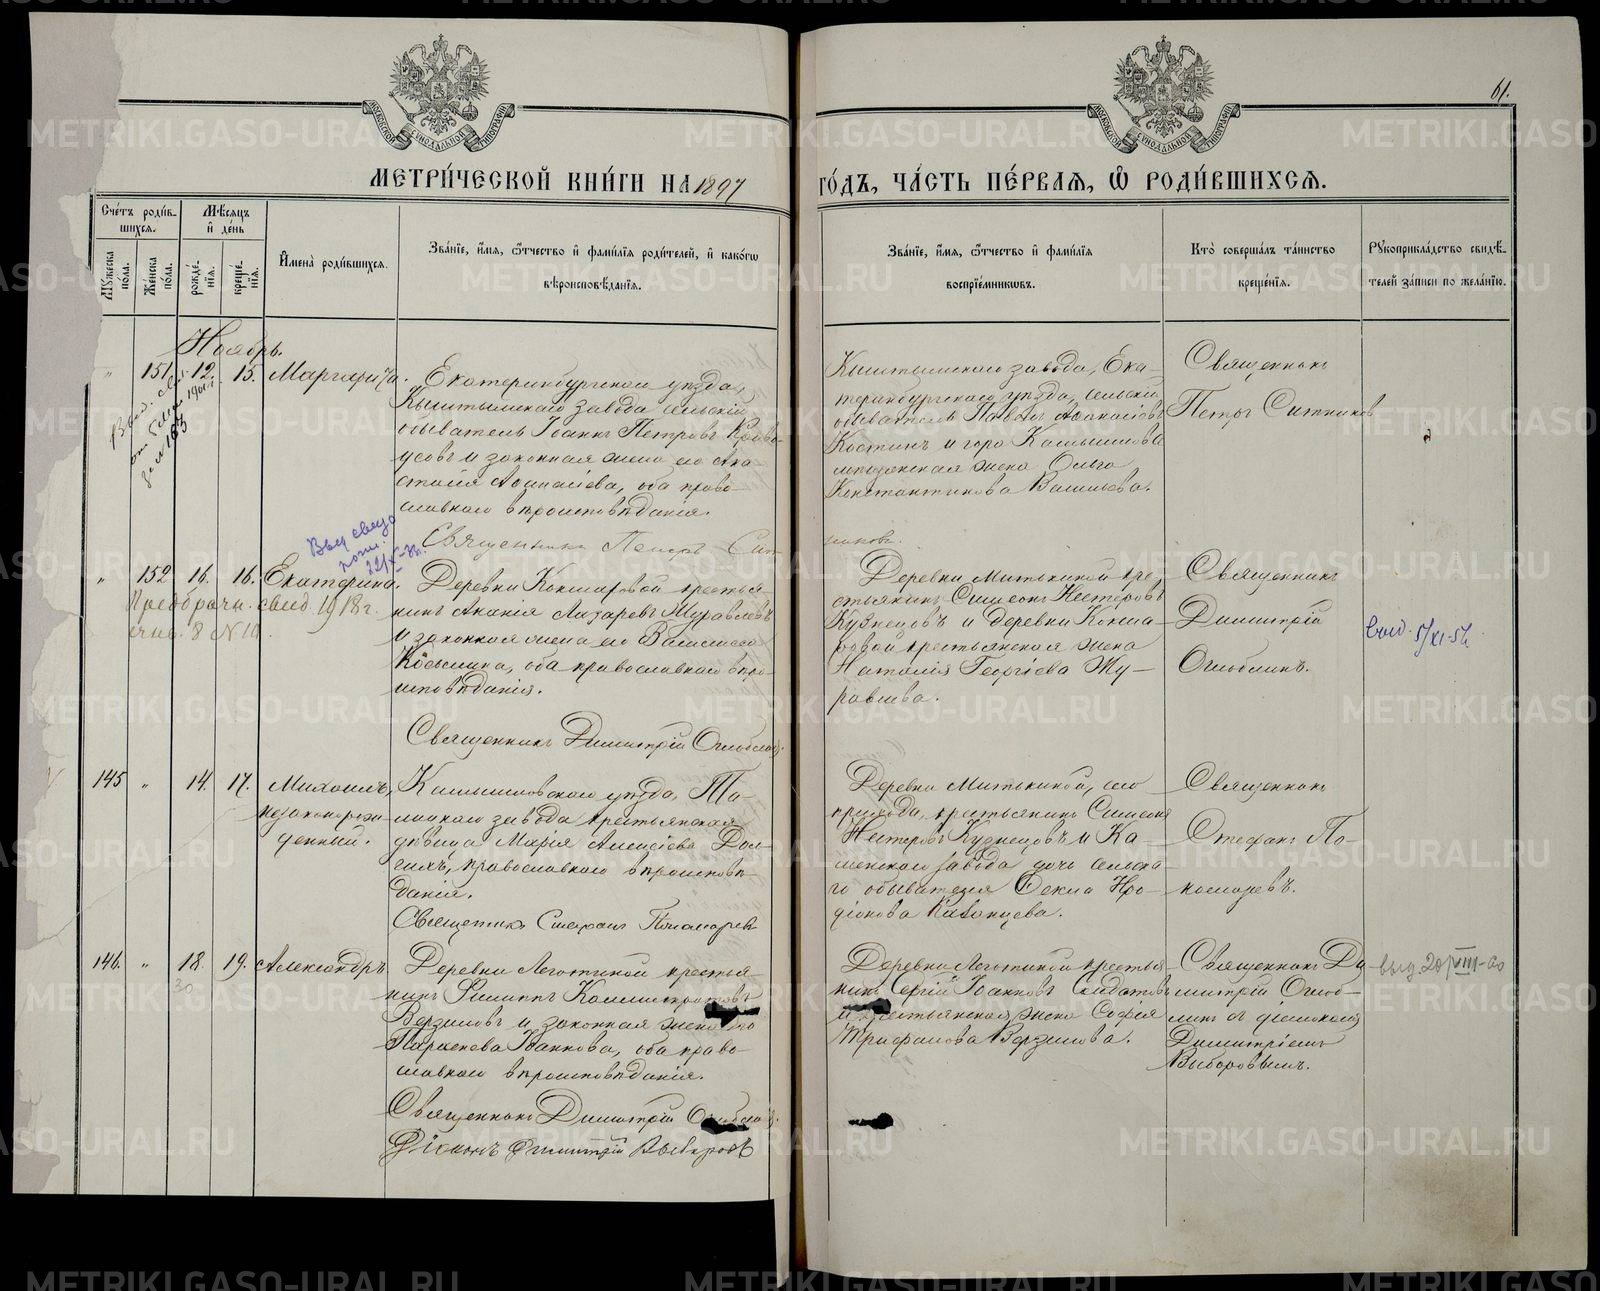 61.
МОСКОВСКОЙ СУНОДАЛЬНОЙ ТИПОГРАФІИ
МОСКОВСКОЙ СУНОДАЛЬНОЙ ТИПОГРАФІИ
МЕТРИ́ЧЕСКОЙ КНИ́ГИ НА 1897 ГО́ДЪ, ЧА́СТЬ ПЕ́РВАЯ, Ѿ РОДИ́ВШИХСЯ.
Сче́тъ роди́в-
шихся.
Му́жеска по́ла.
Же́нска по́ла.
Мѣ́сяцъ и҆ де́нь
рожде́-
нія.
креще́-
нія.
И҆мена̀ роди́вшихся.
Зва́нїе, и҆́мя, ѻ҆́тчество и҆ фами́лїя роди́телей, и҆ како́гѡ
вѣроисповѣ́данїя.
Зва́нїе, и҆́мя, ѻ҆́тчество и҆ фами́лїя
воспрїе́мникѡвъ.
Кто̀ соверша́лъ та́инство
креще́нїя.
Рꙋкоприкла́дство свидѣ́-
телей за́писи по жела́нїю.
Ноябрь.
" 151. 12. 15. Маргарита.
Екатеринбургскаго уѣзда,
Кыштымскаго завода сельскій
обыватель Іоаннъ Петровъ
и законная жена его Ана-
стасія Аѳанасіева, оба право-
славнаго вѣроисповѣданія.
Священникъ Петръ Сит
никовъ.
Кыштымскаго завода, Ека-
теринбургскаго уѣзда, сельскій
обыватель Павелъ Аѳанасіевъ
Костинъ и гора Камышлова
мѣщанская жена Ольга
Константинова Васильева.
Священникъ
Петръ Ситников
Выд. свид.
от 1901 г.
за № 163
Выд свид
" 152 16. 16. Екатерина.
Предбрачн. свид. 1918 г.
8 № 10
Деревни Кокшаровой крестья-
нинъ Ананія Лазаревъ Журавлевъ
и законная жена его Василиса
Косьмина, оба православнаго вѣро-
исповѣданія.
Священникъ Димитрій Оглоблинъ.
Деревни Митькиной кре-
стьянинъ Симеонъ Нестеровъ
Кузнецовъ и деревни Кокша-
ровой крестьянская жена
Наталія Георгіева Жу-
равлева.
Священникъ
Димитрій
Оглоблинъ.
выд. 5/XI-51.
145 " 14. 17. Михаилъ,
незаконорож-
денный.
Камышловскаго уѣзда, Та-
лицкаго завода крестьянская
дѣвица Марія Алексіева Дол-
гихъ, православнаго вѣроисповѣ-
данія.
Священникъ Стефанъ Пономаревъ
Деревни Митькиной, сего
прихода, крестьянинъ Симеонъ
Нестеровъ Кузнецовъ и Ка-
менскаго завода дочь сельска-
го обывателя Ѳекла Иро-
діонова Казанцева.
Священникъ
Стефанъ По-
номаревъ.
146. " 18. 19. Александръ
30
Деревни Логотиной крестья-
нинъ Филиппъ Каллистратовъ
Верзиловъ и законная жена его
Параскева Іоаннова, оба право-
славнаго вѣроисповѣданія.
Священникъ Димитрій
Діаконъ Димитрій Выборовъ
Деревни Логотиной крестья
нинъ Сергій Іоанновъ Солдатовъ
и крестьянская жена Софія
Трифонова Верзилова.
Священникъ Ди
митрій Оглоб-
линъ съ діакономъ
Димитріемъ
Выборовымъ.
выд 20/VIII-60
METRIKI.GASO-URAL.RU